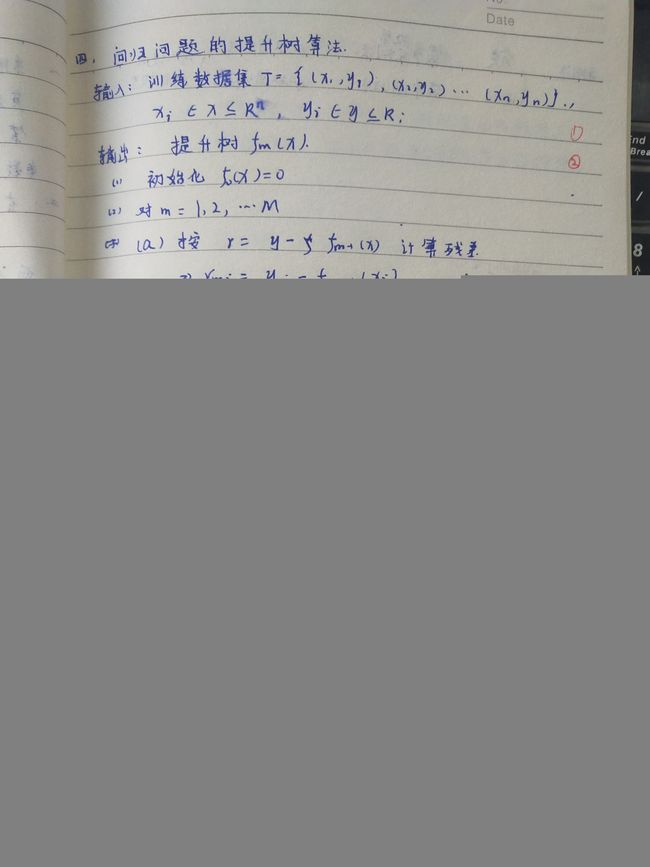 Date
四. 回归问题的提升树算法.
输入: 训练数据集 T= {(x₁,y₁), (x₂,y₂) … (xₙ,yₙ)}.,
xᵢ ∈ X ⊆ Rⁿ, yᵢ ∈ y ⊆ R;
①
输出: 提升树 fm(x).
②
(1) 初始化 f₀(x)=0
(2) 对 m = 1, 2, … M
(a) 按 r = y - fm-1(x) 计算残差
rmi = yi - f (xi)
End
Brea
/
8